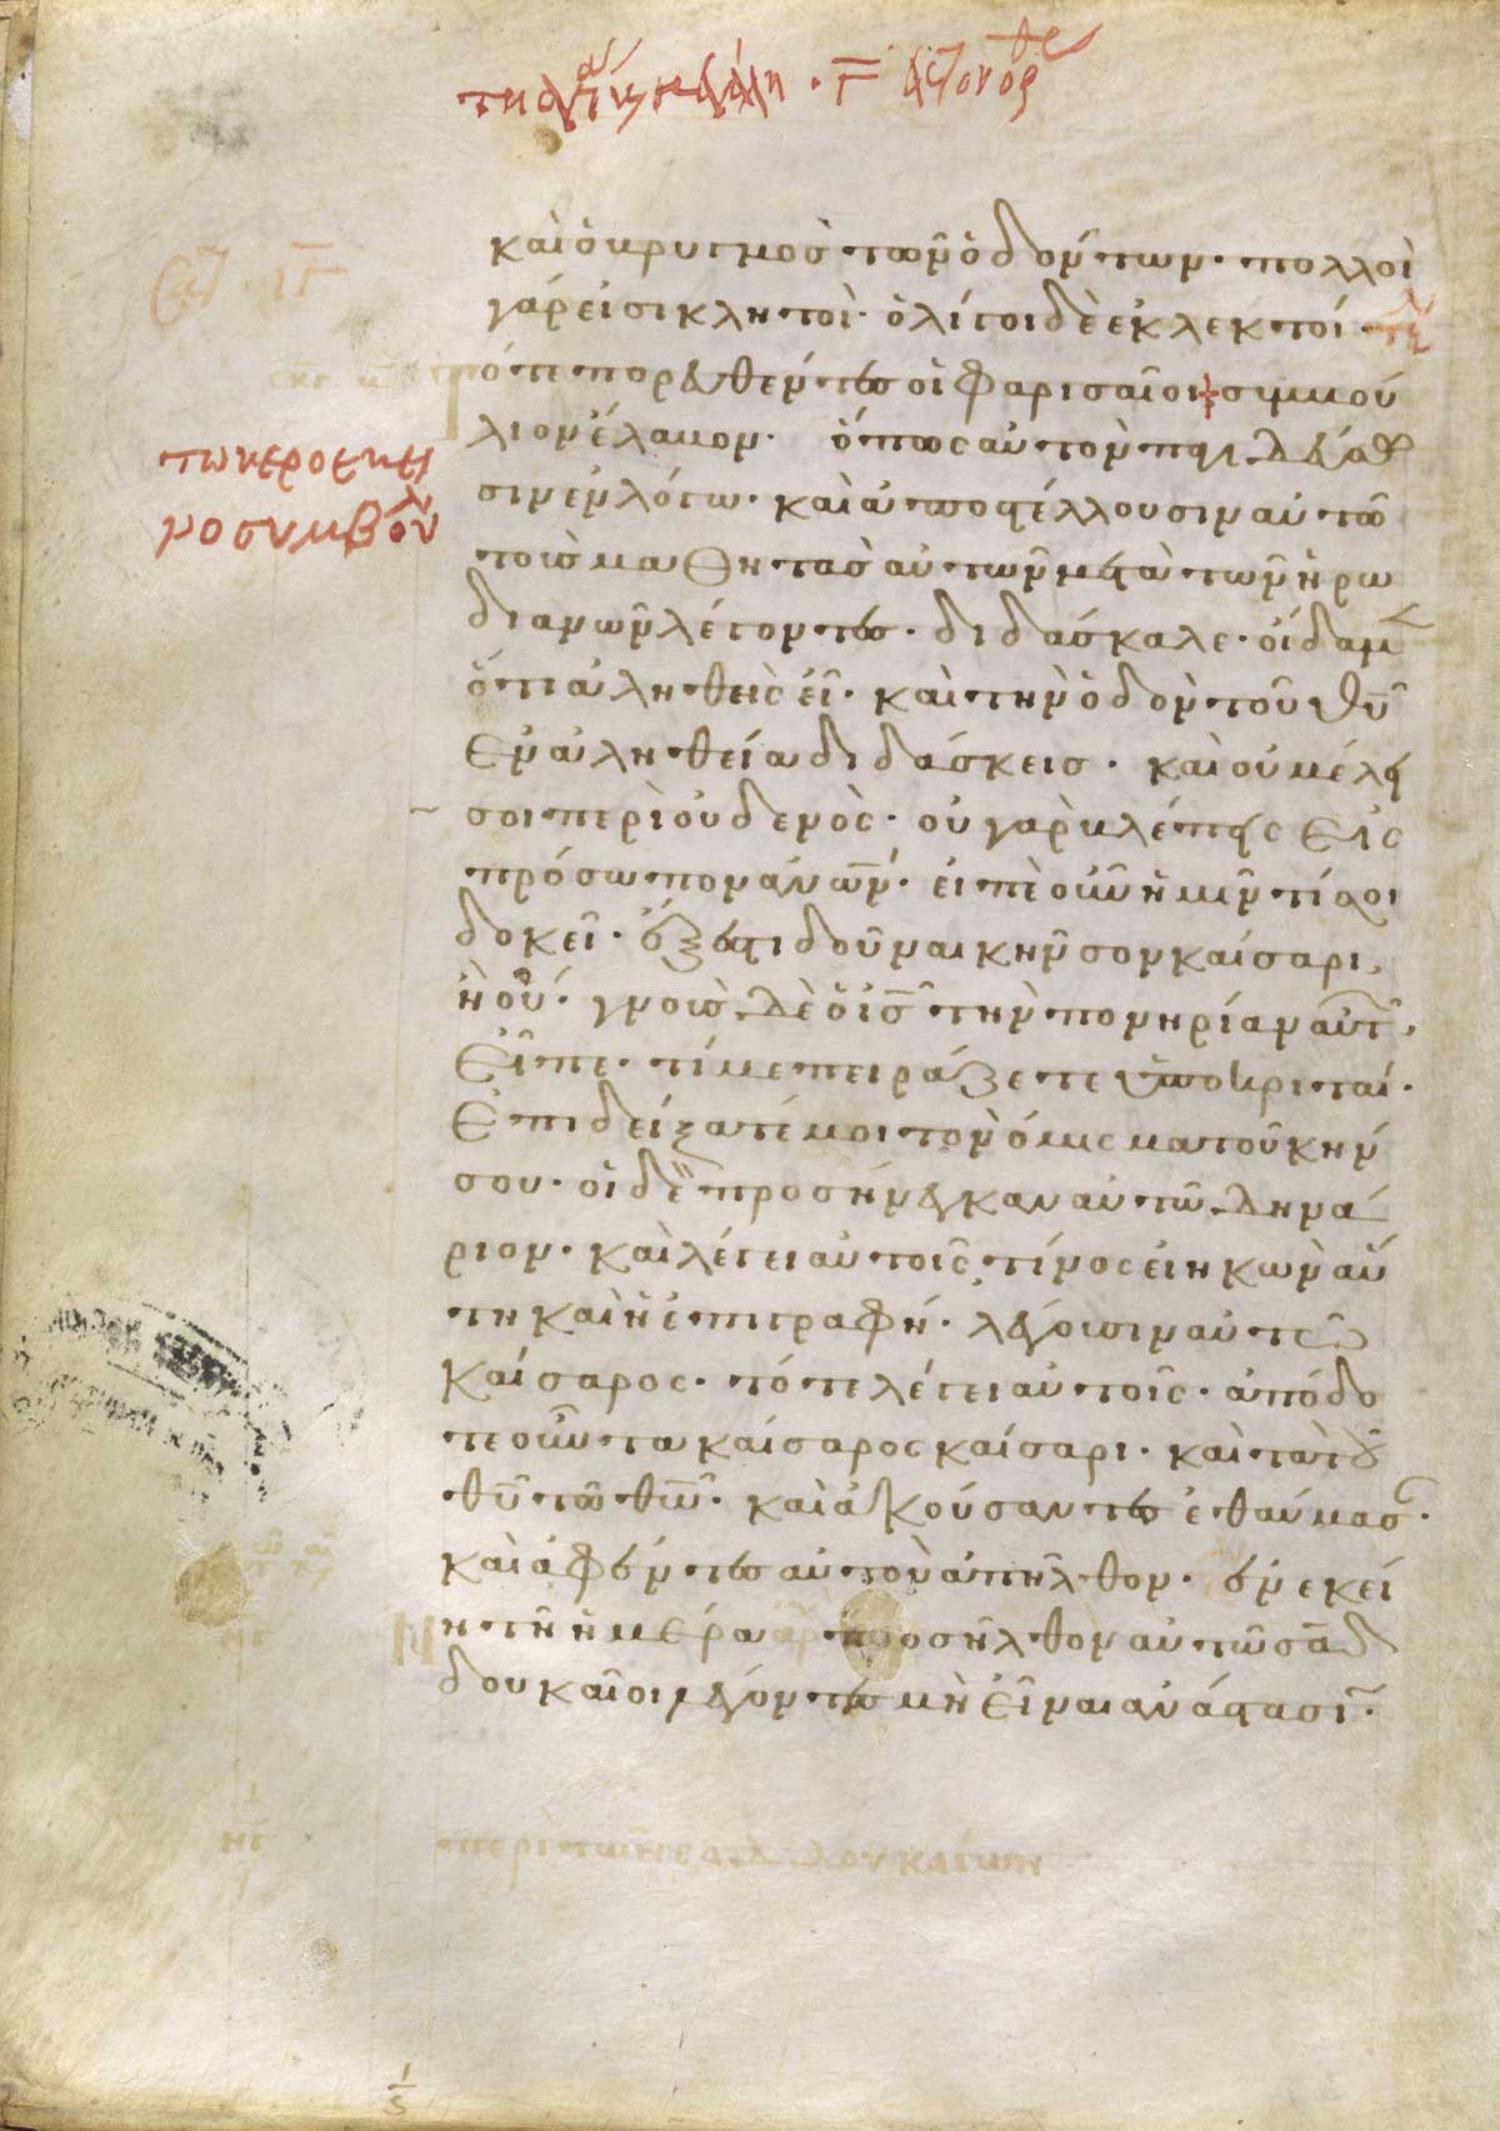 καὶ ὁ βρυγμὸσ τῶν ὀδόντων· πολλοὶ
γάρ εἰσι κλητοὶ· ὀλίγοι δὲ ἐκλεκτοί·
τότε πορευθέντεσ οἱ φαρισαῖοι συμβού
λιον ἔλαβον· ὅπως αὐτὸν παγιδεύσω
σιν ἐν λόγω· καὶ ἀποστέλλουσιν αὐτῶ
τοὺσ μαθητὰσ αὐτῶν μετὰ τῶν ἡρω
διανῶν λέγοντεσ· διδάσκαλε· οἴδαμεν
ὅτι ἀληθεὶς εἶ· καὶ τὴν ὁδὸν τοῦ θ̅υ̅
ἐν ἀληθεία διδάσκεισ· καὶ οὐ μέλει
σοι περὶ οὐδενὸς· οὐ γὰρ βλέπεις εἰς
πρόσωπον ἀν̅ω̅ν· εἰπὲ οὖν ἡμῖν τί σοι
δοκεῖ· ἔξεστι δοῦναι κῆνσον καίσαρι,
ἢ οὔ· γνοὺσ δὲ ὁ ι̅σ̅ τὴν πονηρίαν αὐτῶν,
εἶπε· τί με πειράζετε ὑποκριταί·
ἐπιδείξατέ μοι τὸ νόμισμα τοῦ κήν
σου· οἱ δὲ προσήνεγκαν αὐτῶ δηνά
ριον· καὶ λέγει αὐτοῖς τίνος εἰ ἡ κὼν αὕ
τη καὶ ἡ ἐπιγραφή· λέγουσιν αὐτῶ
καίσαρος· τότε λέγει αὐτοῖς· ἀπόδο
τε οὖν τα καίσαρος καίσαρι· καὶ τὰ τοῦ
θ̅υ̅ τῶ θ̅ω̅· καὶ ἀκούσαντεσ ἐθαύμασαν·
καὶ ἀφέντεσ αὐτὸν ἀπῆλθον· ἐν ἐκεί
νη τῆ ἡμέρα προσῆλθον αὐτῶ σαδ
δουκαῖοι λέγοντεσ μὴ εἶναι ἀνάστασιν·